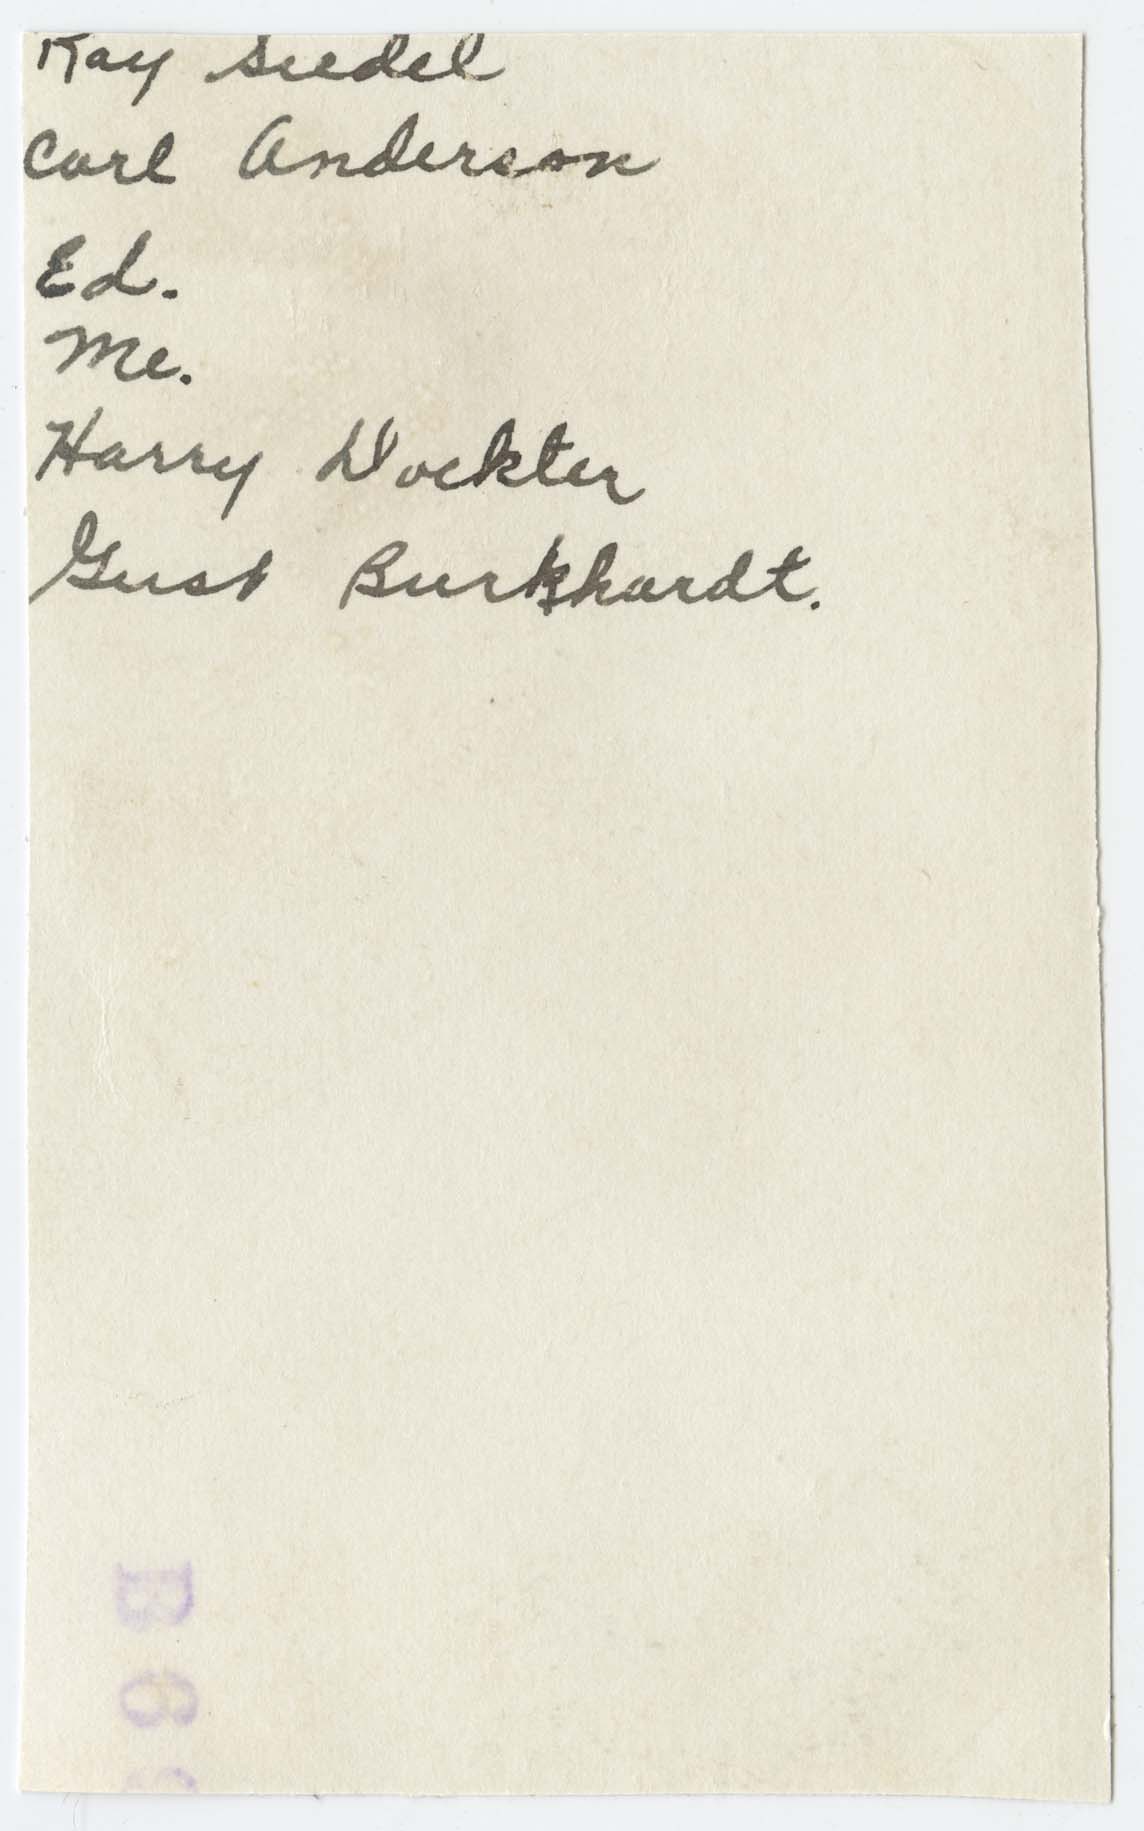 Ray Siedel
Carl Anderson
Ed.
Me.
Harry Dockter
Gust Burkhardt.
B6